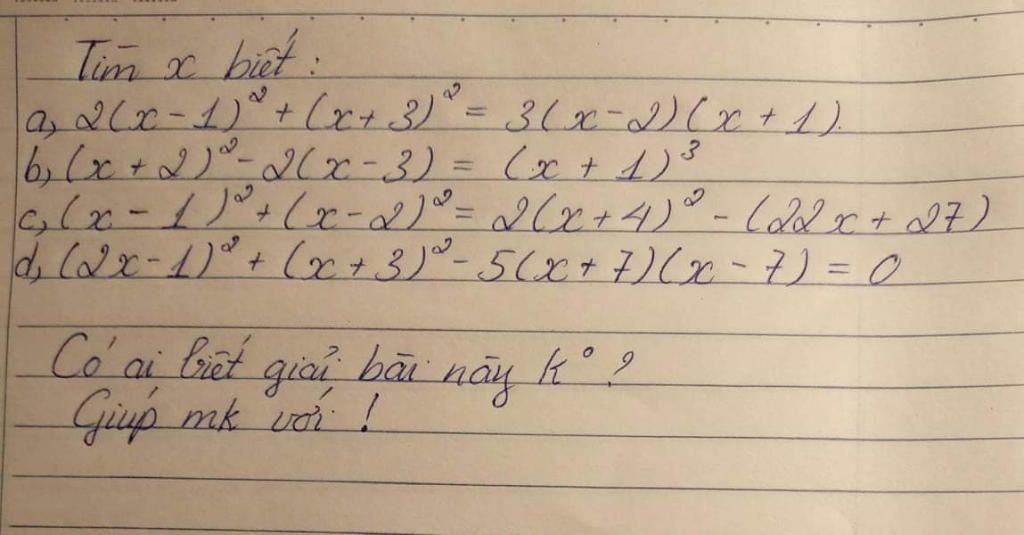 Tìm x biết :
a, 2(x - 1)² + (x + 3)² = 3(x - 2)(x + 1).
b, (x + 2)² - 2(x - 3) = (x + 1)³
c, (x - 1)² + (x - 2)² = 2(x + 4)² - (22x + 27)
d, (2x - 1)² + (x + 3)² - 5(x + 7)(x - 7) = 0
Có ai biết giải bài này k° ?
Giúp mk với !